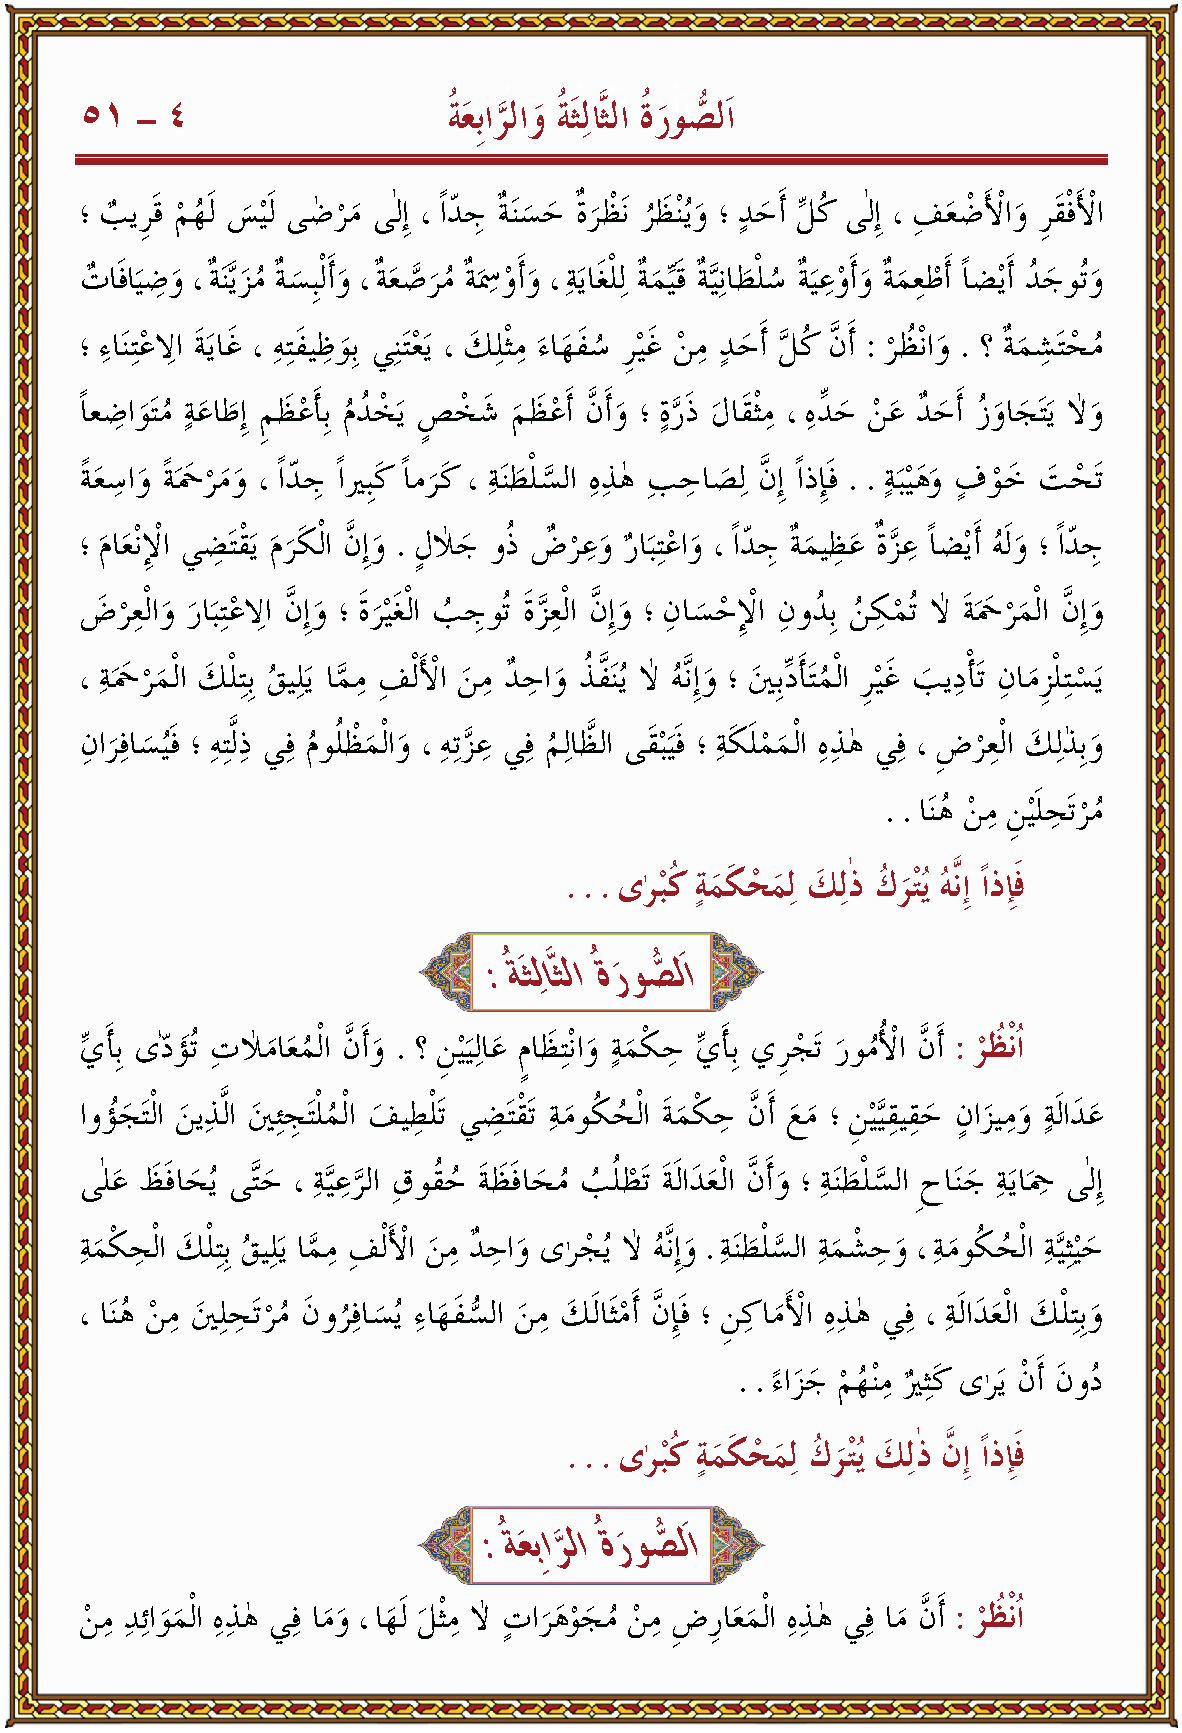 اَلصُّورَةُ الثَّالِثَةُ وَالرَّابِعَةُ
٤ – ٥١
الْأَفْقَرِ وَالْأَضْعَفِ ، إِلٰى كُلِّ أَحَدٍ ؛ وَيُنْظَرُ نَظْرَةٌ حَسَنَةٌ جِدّاً ، إِلٰى مَرْضٰى لَيْسَ لَهُمْ قَرِيبٌ ؛
وَتُوجَدُ أَيْضاً أَطْعِمَةٌ وَأَوْعِيَةٌ سُلْطَانِيَّةٌ قَيِّمَةٌ لِلْغَايَةِ ، وَأَوْسِمَةٌ مُرَصَّعَةٌ ، وَأَلْبِسَةٌ مُزَيَّنَةٌ ، وَضِيَافَاتٌ
مُحْتَشِمَةٌ ؟ . وَانْظُرْ : أَنَّ كُلَّ أَحَدٍ مِنْ غَيْرِ سُفَهَاءَ مِثْلِكَ ، يَعْتَنِي بِوَظِيفَتِهِ ، غَايَةَ الِاعْتِنَاءِ ؛
وَلَا يَتَجَاوَزُ أَحَدٌ عَنْ حَدِّهِ ، مِثْقَالَ ذَرَّةٍ ؛ وَأَنَّ أَعْظَمَ شَخْصٍ يَخْدُمُ بِأَعْظَمِ إِطَاعَةٍ مُتَوَاضِعاً
تَحْتَ خَوْفٍ وَهَيْبَةٍ . . فَإِذاً إِنَّ لِصَاحِبِ هٰذِهِ السَّلْطَنَةِ ، كَرَماً كَبِيراً جِدّاً ، وَمَرْحَمَةً وَاسِعَةً
جِدّاً ؛ وَلَهُ أَيْضاً عِزَّةٌ عَظِيمَةٌ جِدّاً ، وَاعْتِبَارٌ وَعِرْضٌ ذُو جَلَالٍ . وَإِنَّ الْكَرَمَ يَقْتَضِي الْإِنْعَامَ ؛
وَإِنَّ الْمَرْحَمَةَ لَا تُمْكِنُ بِدُونِ الْإِحْسَانِ ؛ وَإِنَّ الْعِزَّةَ تُوجِبُ الْغَيْرَةَ ؛ وَإِنَّ الِاعْتِبَارَ وَالْعِرْضَ
يَسْتِلْزِمَانِ تَأْدِيبَ غَيْرِ الْمُتَأَدِّبِينَ ؛ وَإِنَّهُ لَا يُنَفَّذُ وَاحِدٌ مِنَ الْأَلْفِ مِمَّا يَلِيقُ بِتِلْكَ الْمَرْحَمَةِ ،
وَبِذٰلِكَ الْعِرْضِ ، فِي هٰذِهِ الْمَمْلَكَةِ ؛ فَيَبْقَى الظَّالِمُ فِي عِزَّتِهِ ، وَالْمَظْلُومُ فِي ذِلَّتِهِ ؛ فَيُسَافِرَانِ
مُرْتَحِلَيْنِ مِنْ هُنَا . .
فَإِذاً إِنَّهُ يُتْرَكُ ذٰلِكَ لِمَحْكَمَةٍ كُبْرٰى . . .
اَلصُّورَةُ الثَّالِثَةُ :
اُنْظُرْ : أَنَّ الْأُمُورَ تَجْرِي بِأَيِّ حِكْمَةٍ وَانْتِظَامٍ عَالِيَيْنِ ؟ . وَأَنَّ الْمُعَامَلَاتِ تُؤَدّٰى بِأَيِّ
عَدَالَةٍ وَمِيزَانٍ حَقِيقِيَّيْنِ ؛ مَعَ أَنَّ حِكْمَةَ الْحُكُومَةِ تَقْتَضِي تَلْطِيفَ الْمُلْتَجِئِينَ الَّذِينَ الْتَجَؤُوا
إِلٰى حِمَايَةِ جَنَاحِ السَّلْطَنَةِ ؛ وَأَنَّ الْعَدَالَةَ تَطْلُبُ مُحَافَظَةَ حُقُوقِ الرَّعِيَّةِ ، حَتَّى يُحَافَظَ عَلٰى
حَيْثِيَّةِ الْحُكُومَةِ ، وَحِشْمَةِ السَّلْطَنَةِ . وَإِنَّهُ لَا يُجْرٰى وَاحِدٌ مِنَ الْأَلْفِ مِمَّا يَلِيقُ بِتِلْكَ الْحِكْمَةِ
وَبِتِلْكَ الْعَدَالَةِ ، فِي هٰذِهِ الْأَمَاكِنِ ؛ فَإِنَّ أَمْثَالَكَ مِنَ السُّفَهَاءِ يُسَافِرُونَ مُرْتَحِلِينَ مِنْ هُنَا ،
دُونَ أَنْ يَرٰى كَثِيرٌ مِنْهُمْ جَزَاءً . .
فَإِذاً إِنَّ ذٰلِكَ يُتْرَكُ لِمَحْكَمَةٍ كُبْرٰى . . .
اَلصُّورَةُ الرَّابِعَةُ :
اُنْظُرْ : أَنَّ مَا فِي هٰذِهِ الْمَعَارِضِ مِنْ مُجَوْهَرَاتٍ لَا مِثْلَ لَهَا ، وَمَا فِي هٰذِهِ الْمَوَائِدِ مِنْ